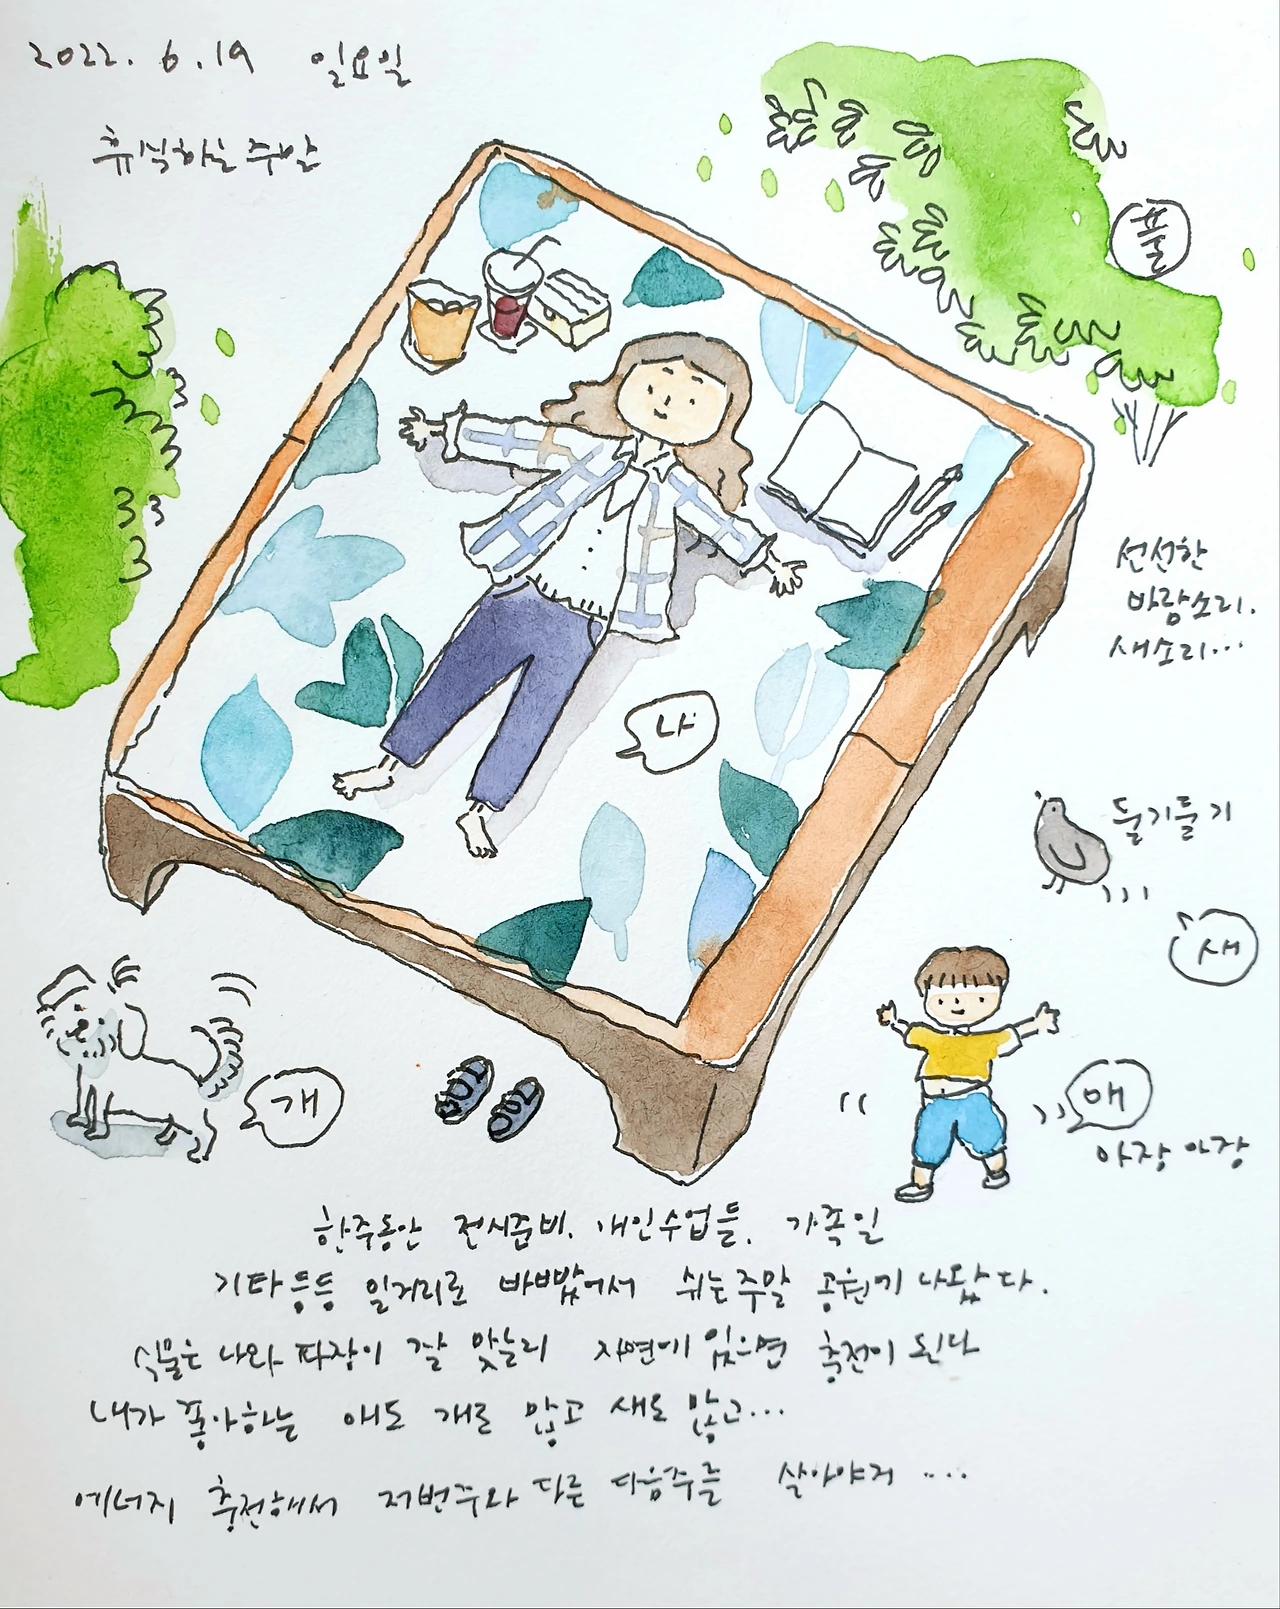 2022. 6.19 일요일
휴식하는 주말
풀
선선한
바람소리.
새소리...
나
둘기둘기
새
개
애
아장 아장
한주동안 전시준비. 개인수업들. 가족일
기타등등 일거리로 바빴어서 쉬는주말 공원에 나왔다.
식물은 나와 파장이 잘 맞는지 자연에 있으면 충전이 된다
내가 좋아하는 애도 개도 많고 새도 많고...
에너지 충전해서 저번주와 다른 다음주를 살아야지 ....